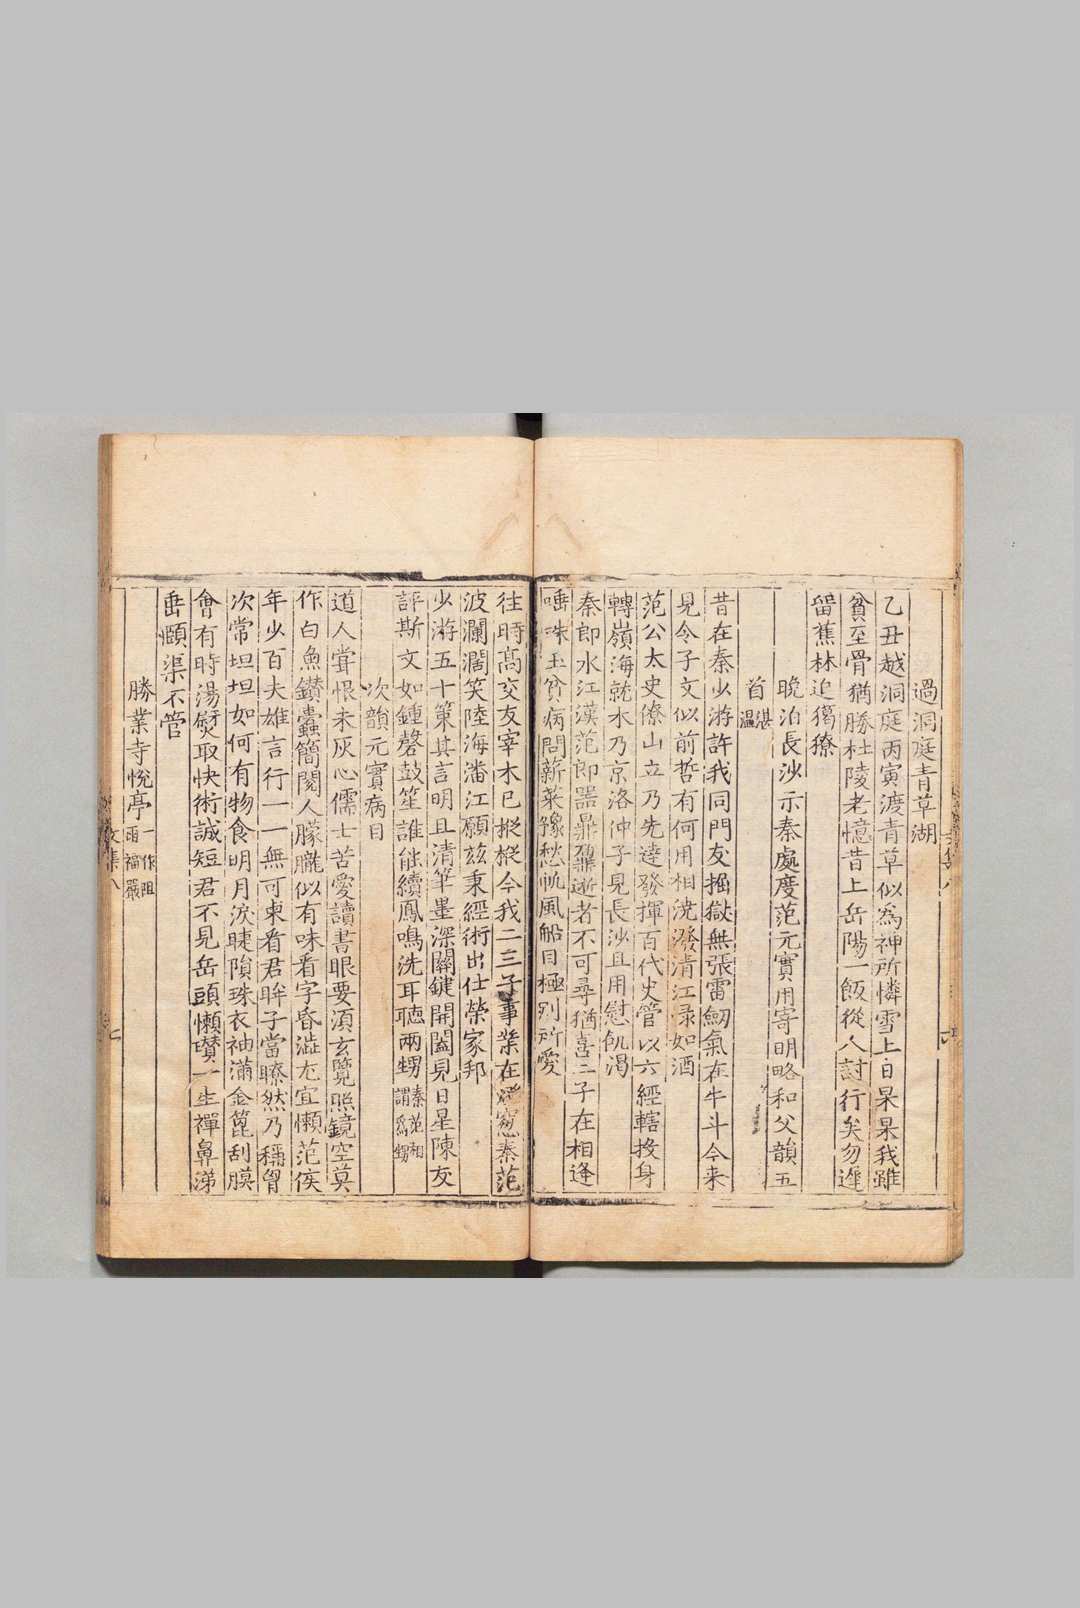 過洞庭青草湖
乙丑越洞庭丙寅渡青草似為神所憐雪上日杲杲我雖
貧至骨猶勝杜陵老憶昔上岳陽一飯從人討行矣勿遲
留蕉林追獦獠
晚泊長沙示秦處度范元實用寄明略和父韻五
首 湛溫
昔在秦少游許我同門友掘獄無張雷劒氣在牛斗今来
見令子文似前哲有何用相澆潑清江淥如酒
范公太史僚山立乃先達發揮百代史管以六經轄投身
轉嶺海就木乃京洛仲子見長沙且用慰飢渴
秦郎水江漢范郎器鼎鼐逝者不可尋猶喜二子在相逢
唾珠玉貧病問薪菜豫愁帆風船目極別所愛
往時高交友宰木已樅樅今我二三子事業在燈窓秦范
波瀾濶笑陸海潘江願茲秉經術出仕榮家邦
少游五十策其言明且清筆墨深關鍵開闔見日星陳友
評斯文如鍾磬鼓笙誰能續鳳鳴洗耳聽兩甥 秦范相謂為甥
次韻元實病目
道人嘗恨未灰心儒士苦愛讀書眼要須玄覽照鏡空莫
作白魚鑽蠹簡閱人朦朧似有味看字昏澁尢宜懶范侯
年少百夫雄言行一一無可柬看君眸子當瞭然乃稱胷
次常坦坦如何有物食明月淚睫隕珠衣袖滿金篦刮膜
會有時湯熨取快術誠短君不見岳頭懶瓚一生禪鼻涕
垂頤渠不管
勝業寺恱亭 一作阻雨福嚴
文集八
七